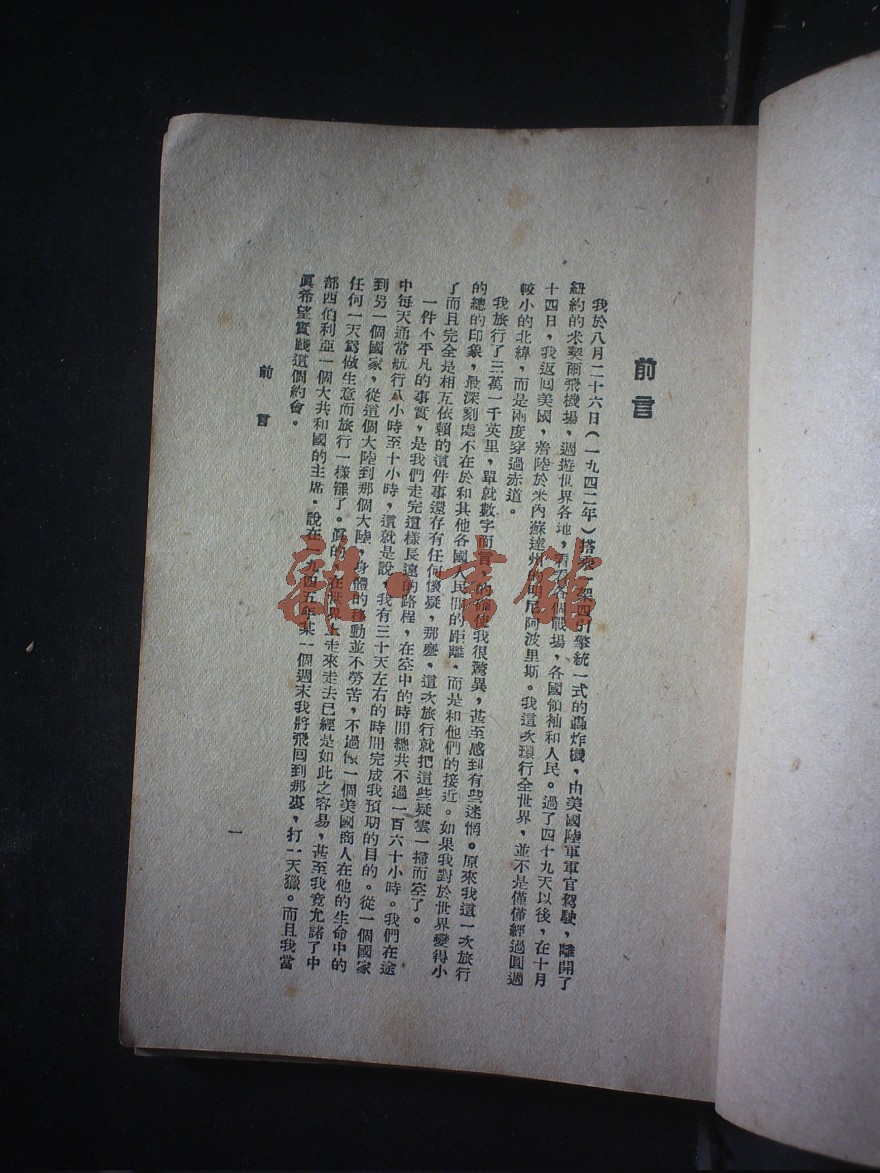 前言
我於八月二十六日（一九四二年）搭乘一架四引擎統一式的轟炸機，由美國陸軍軍官駕駛，離開了
紐約的米契爾飛機場，週遊世界各地，看看各個戰場，各國領袖和人民。過了四十九天以後，在十月
十四日，我返回美國，着陸於米內蘇達州的明尼阿波里斯。我這次環行全世界，並不是僅僅經過圓週
較小的北緯，而是兩度穿過赤道。
我旅行了三萬一千英里，單就數字而言，的確使我很驚異，甚至感到有些迷惘。原來我這一次旅行
的總的印象，最深刻處不在於和其他各國人民間的距離，而是和他們的接近。如果我對於世界變得小
了而且完全是相互依賴的這件事還存有任何懷疑，那麼，這次旅行就把這些疑雲一掃而空了。
一件不平凡的事實，是我們走完這樣長遠的路程，在空中的時間總共不過一百六十小時。我們在途
中每天通常航行八小時至十小時，這就是說，我有三十天左右的時間完成我預期的目的。從一個國家
到另一個國家，從這個大陸到那個大陸，身體的移動並不勞苦，不過像一個美國商人在他的生命中的
任何一天爲做生意而旅行一樣罷了。眞的，在世界上走來走去已經是如此之容易，甚至我竟允諾了中
部西伯利亞一個大共和國的主席，說在一九四五年某一個週末我將飛回到那裏，打一天獵。而且我當
眞希望實踐這個約會。
前言
一
雜·書館